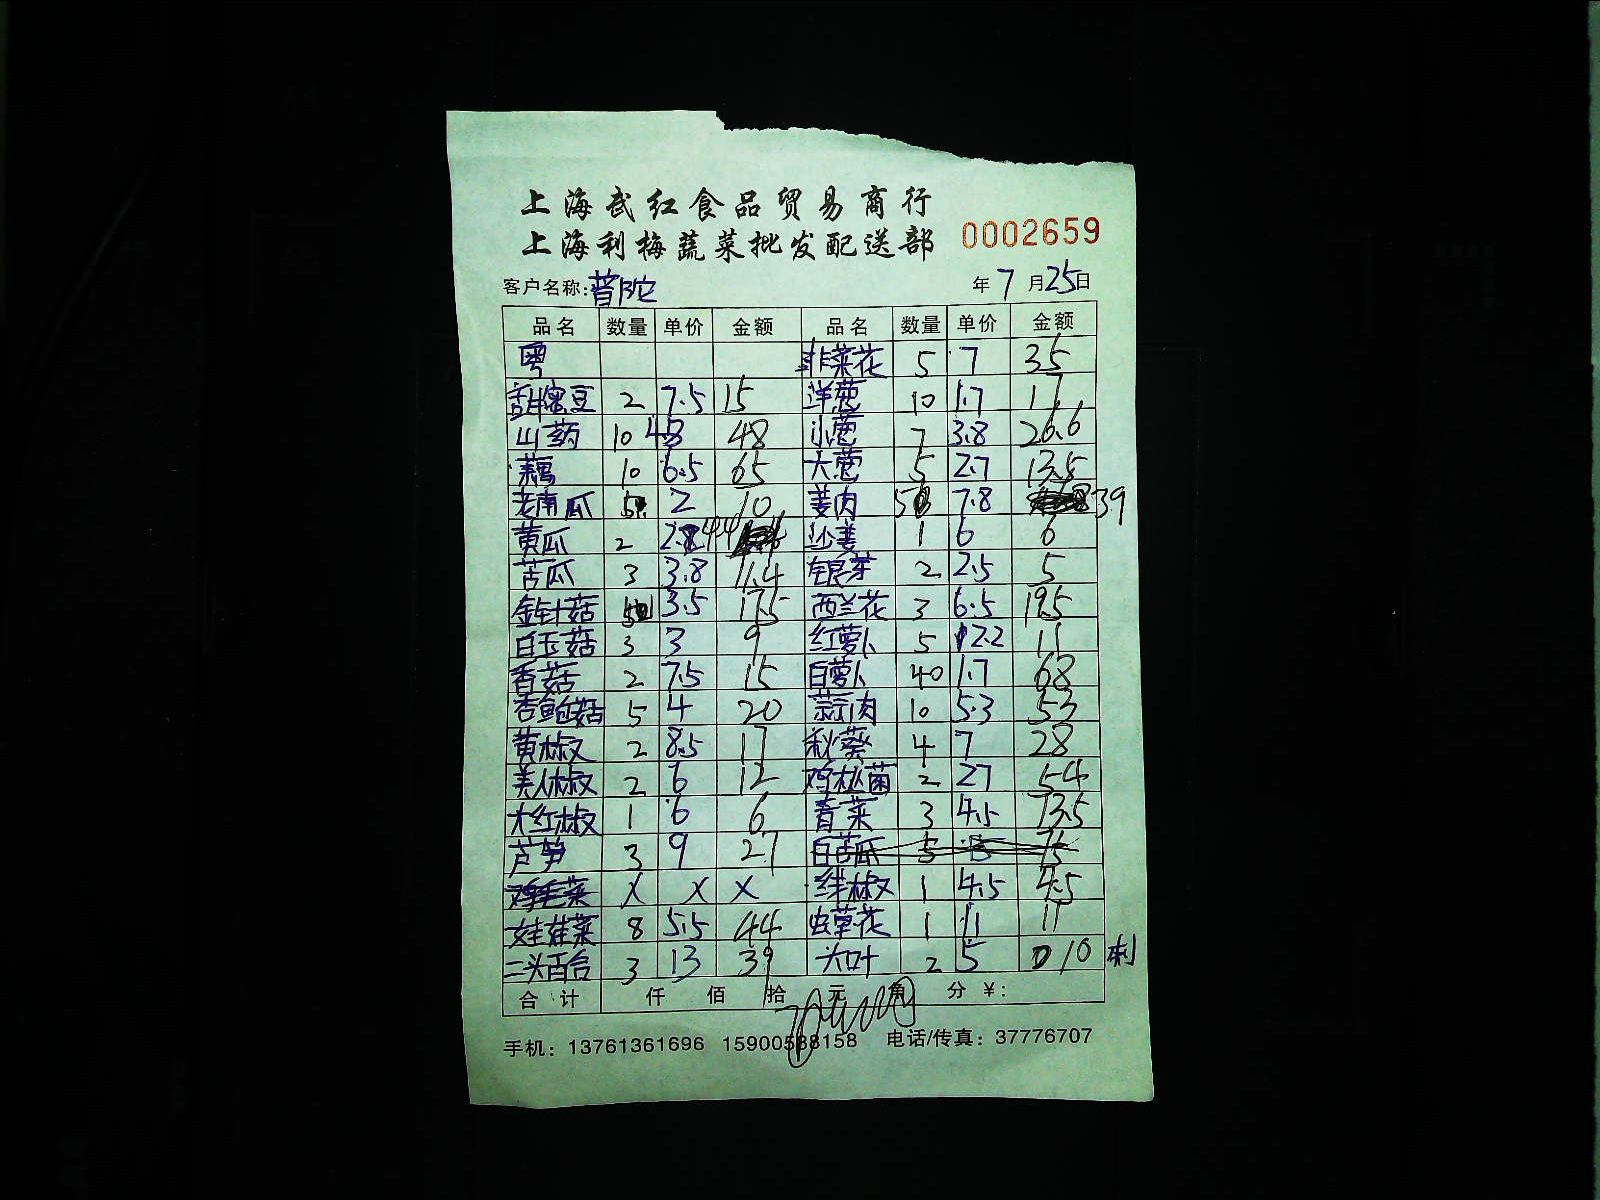 上海武红食品贸易商行
上海利梅蔬菜批发配送部
0002659
客户名称:普陀 年7月25日
品名 数量 单价 金额 品名 数量 单价 金额
粤 韭菜花 5 7 35
甜蜜豆 2 7.5 15 洋葱 10 1.7 17
山药 10 48 小葱 7 3.8 26.6
藕 10 6.5 65 大葱 5 2.7 13.5
老南瓜 2 10 姜肉 5 7.8 39
黄瓜 2 沙姜 1 6 6
苦瓜 3 3.8 11.4 银芽 2 2.5 5
金针菇 3.5 17.5 西兰花 3 6.5 19.5
白玉菇 3 3 9 红萝卜 5 2.2 11
香菇 2 7.5 15 白萝卜 40 1.7 68
杏鲍菇 5 4 20 蒜肉 10 5.3 53
黄椒 2 8.5 17 秋葵 4 7 28
美人椒 2 6 12 鸡枞菌 2 27 54
大红椒 1 6 6 青菜 3 4.5 13.5
芦笋 3 9 27 白苦瓜 5 15
鸡毛菜 X X X 绊椒 1 4.5 4.5
娃娃菜 8 5.5 44 虫草花 1 11 11
二头百合 3 13 39 大叶 2 5 10
合计 仟 佰 拾 元 角 分 ¥:
手机: 13761361696 15900588158 电话/传真: 37776707